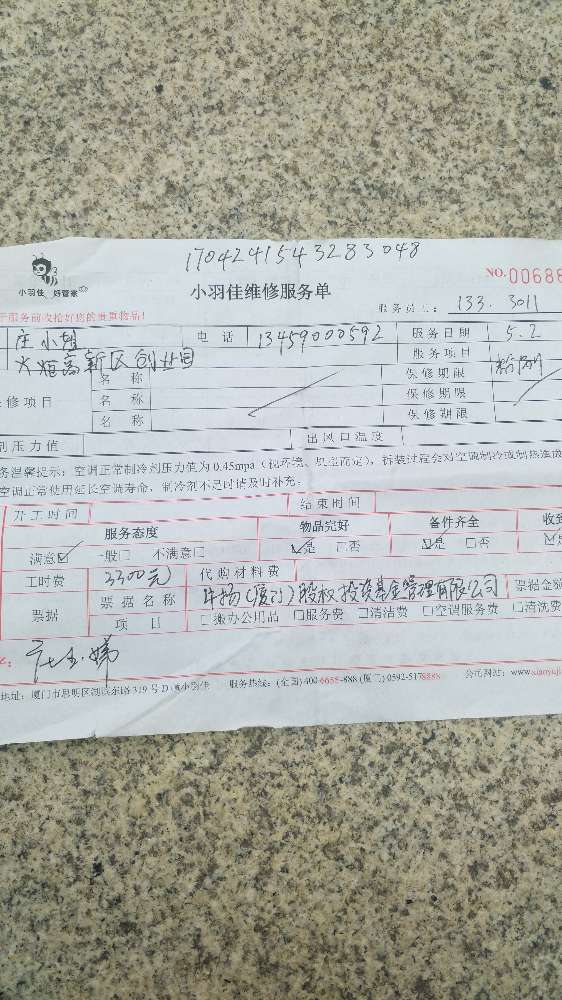 1704241543283048
小羽佳 好管家
小羽佳维修服务单
NO. 00688
服务前收拾好您的贵重物品!
服务员工: 133. 3011
庄小姐 电话 13459000592 服务日期 5.2
火炬高新区创业园 服务项目
名称 保修期限
修项目 名称 保修期限
名称 保修期限
剂压力值 出风口温度
务温馨提示: 空调正常制冷剂压力值为 0.45mpa (视环境、机型而定), 拆装过程会对空调制冷或制热造成
空调正常使用延长空调寿命, 制冷剂不足时请及时补充。
开工时间 结束时间
服务态度 物品完好 备件齐全 收到
满意☑ 一般□ 不满意□ ☑是 □否 ☑是 □否
工时费 3300元 代购材料费
票据 票据名称 (厦门)股权投资基金管理有限公司 票据金额
项目 □搬办公用品 □服务费 □清洁费 □空调服务费 □清洗费
地址: 厦门市思明区湖滨东路 319 号 D 小羽佳 服务热线: (全国) 400-6666-888 (厦门) 0592-5178888 公司网站: www.xiaoyuji